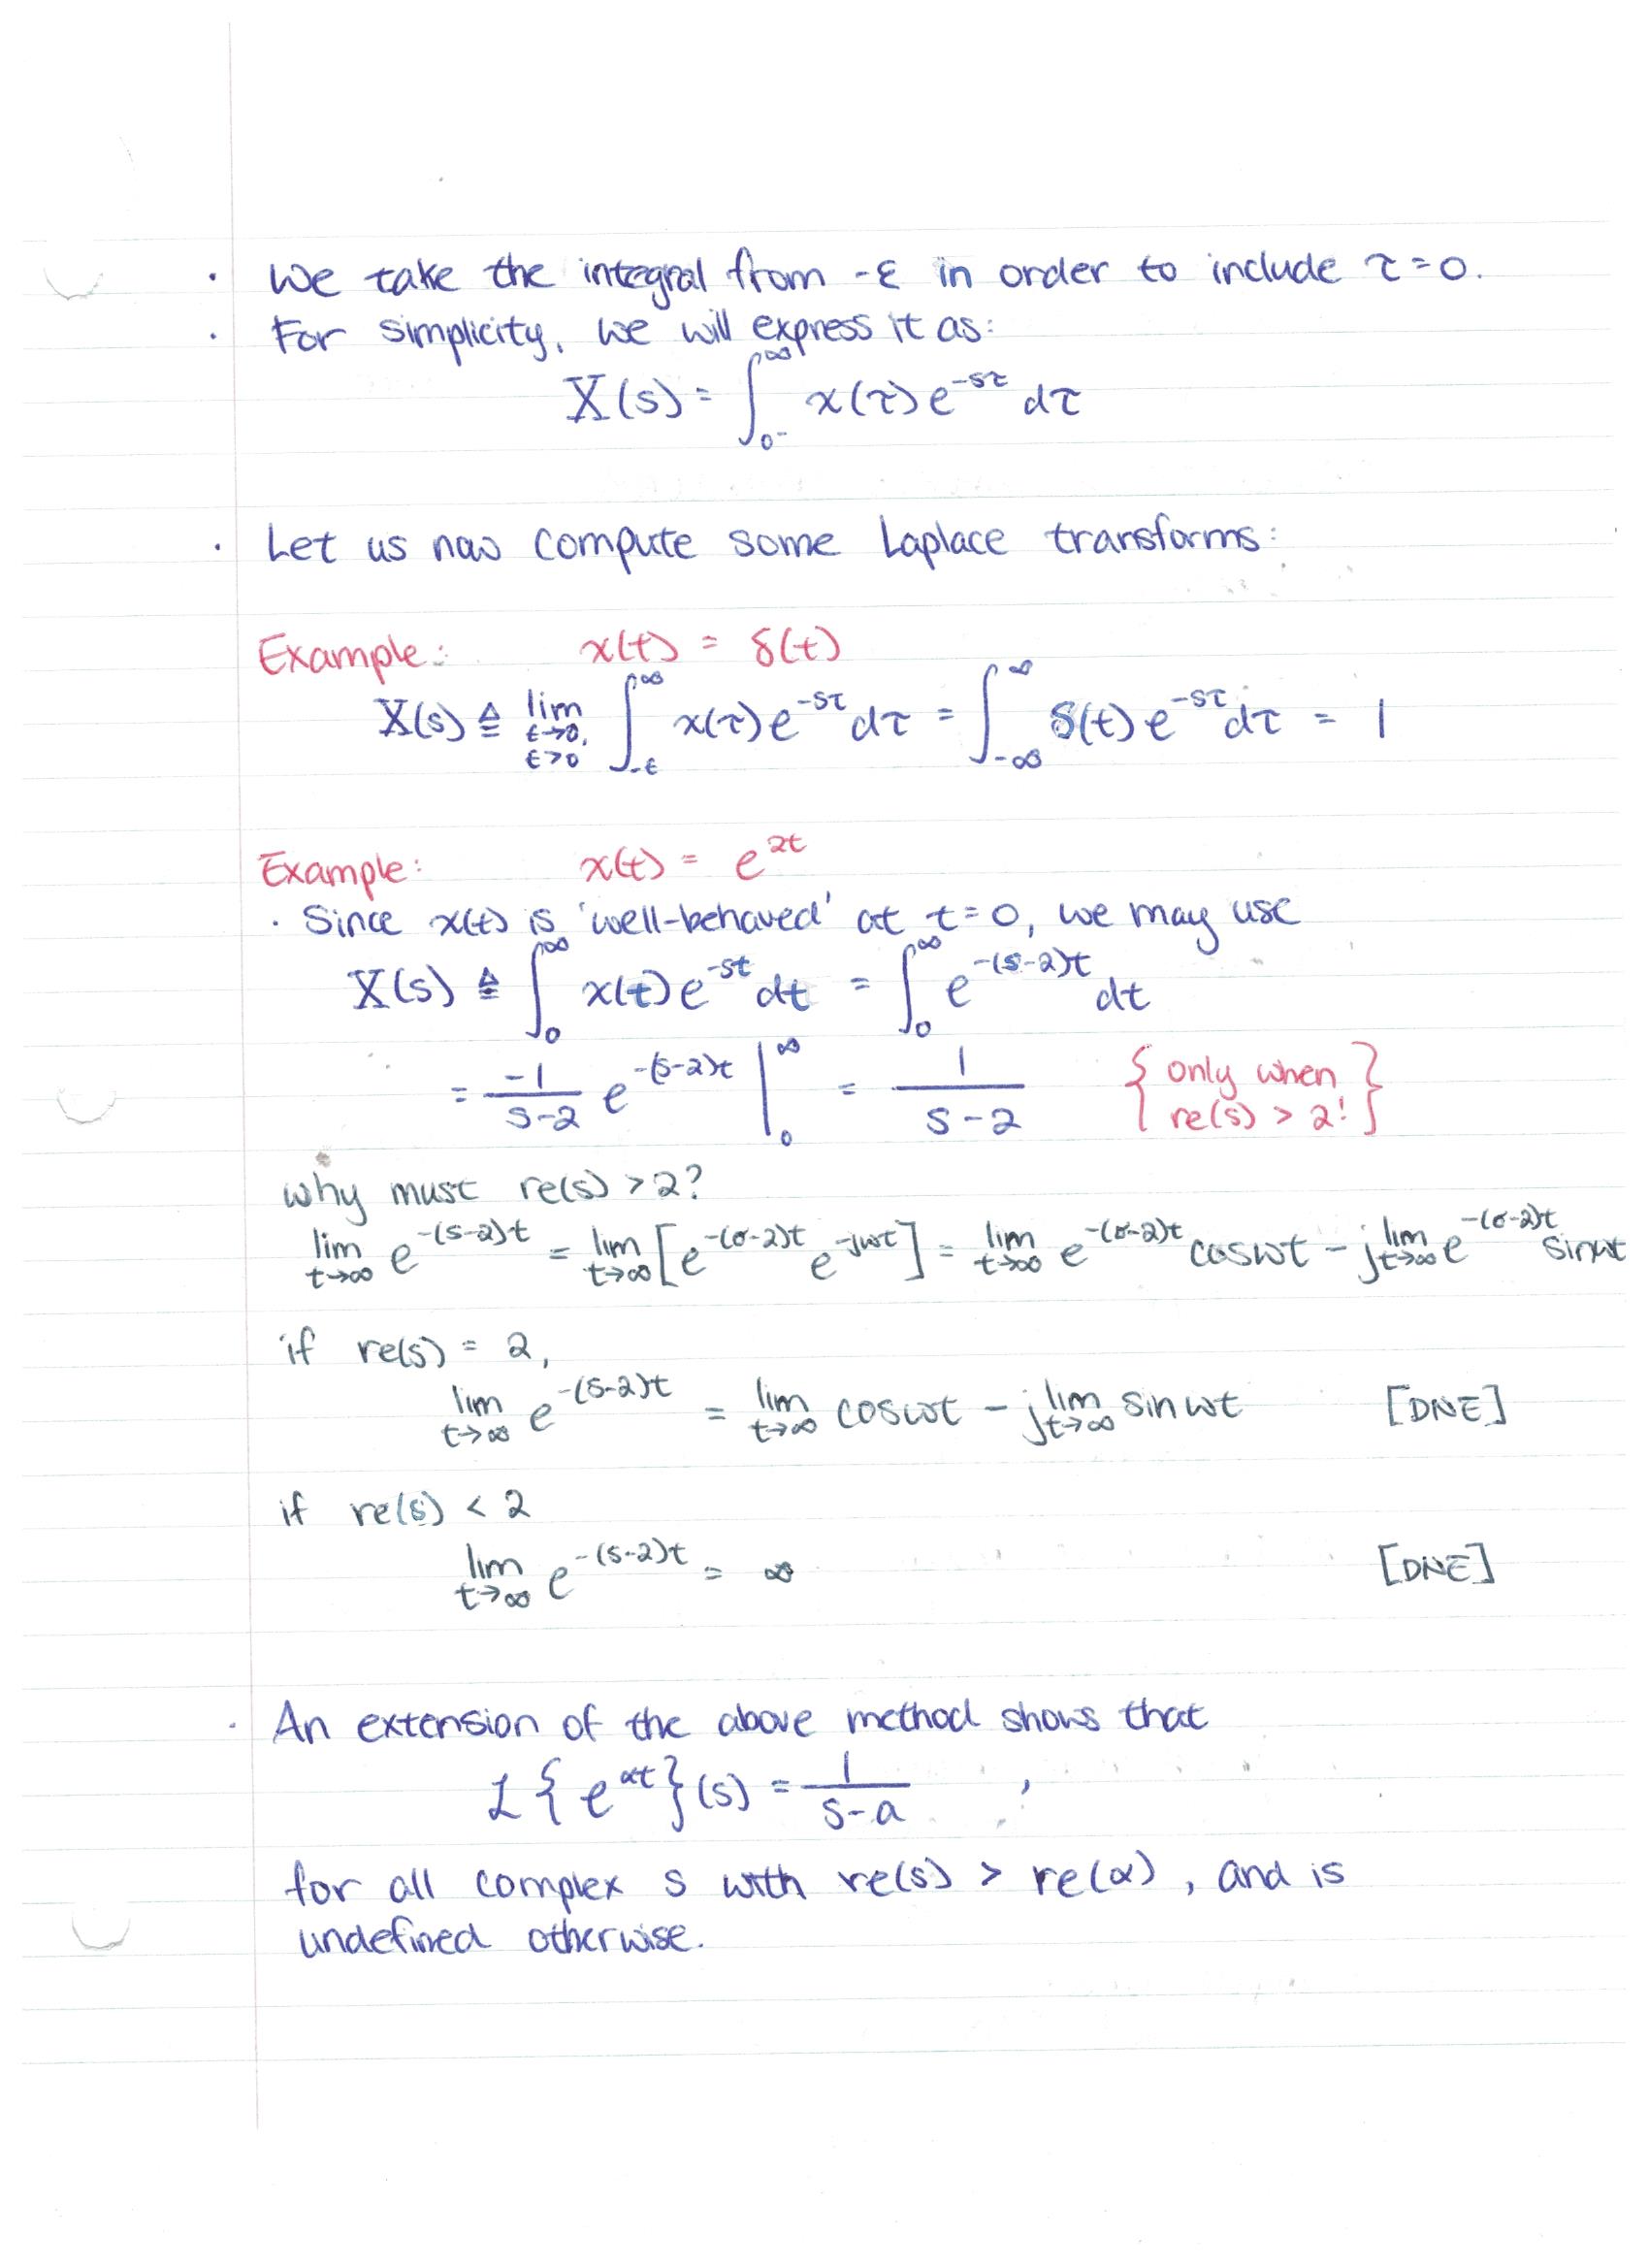 · We take the integral from -ε in order to include τ=0.
· For simplicity, we will express it as:
X(s) = ∫_{0⁻}^{∞} x(τ)e^{-sτ} dτ
· Let us now compute some Laplace transforms:
Example: x(t) = δ(t)
X(s) ≜ lim_{ε→0, ε>0} ∫_{-ε}^{∞} x(τ)e^{-sτ}dτ = ∫_{-∞}^{∞} δ(t)e^{-sτ}dτ = 1
Example: x(t) = e^{2t}
· Since x(t) is 'well-behaved' at t=0, we may use
X(s) ≜ ∫_{0}^{∞} x(t)e^{-st}dt = ∫_{0}^{∞} e^{-(s-2)t} dt
= \frac{-1}{s-2} e^{-(s-2)t} |_{0}^{∞} = \frac{1}{s-2} { only when re(s) > 2! }
why must re(s) >2?
lim_{t→∞} e^{-(s-2)t} = lim_{t→∞} [e^{-(σ-2)t} e^{-jωt}] = lim_{t→∞} e^{-(σ-2)t} cosωt - j lim_{t→∞} e^{-(σ-2)t} sinωt
if re(s) = 2,
lim_{t→∞} e^{-(s-2)t} = lim_{t→∞} cosωt - j lim_{t→∞} sinωt [DNE]
if re(s) < 2
lim_{t→∞} e^{-(s-2)t} = ∞ [DNE]
· An extension of the above method shows that
ℒ{e^{αt}}(s) = \frac{1}{s-a} ,
for all complex s with re(s) > re(α), and is
undefined otherwise.